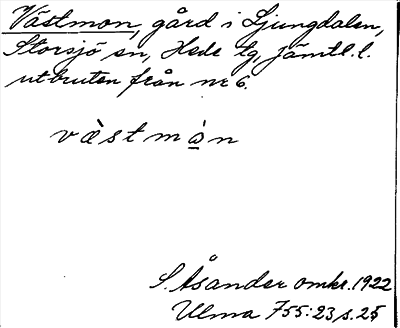 Västmon, gård i Ljungdalen,
Storsjö sn, Hede tg, Jämtl. l.
utbruten från nr 6.
vɛ̀stmɑ̀n
S. Åsander omkr. 1922
Ulma 755:23 s. 25